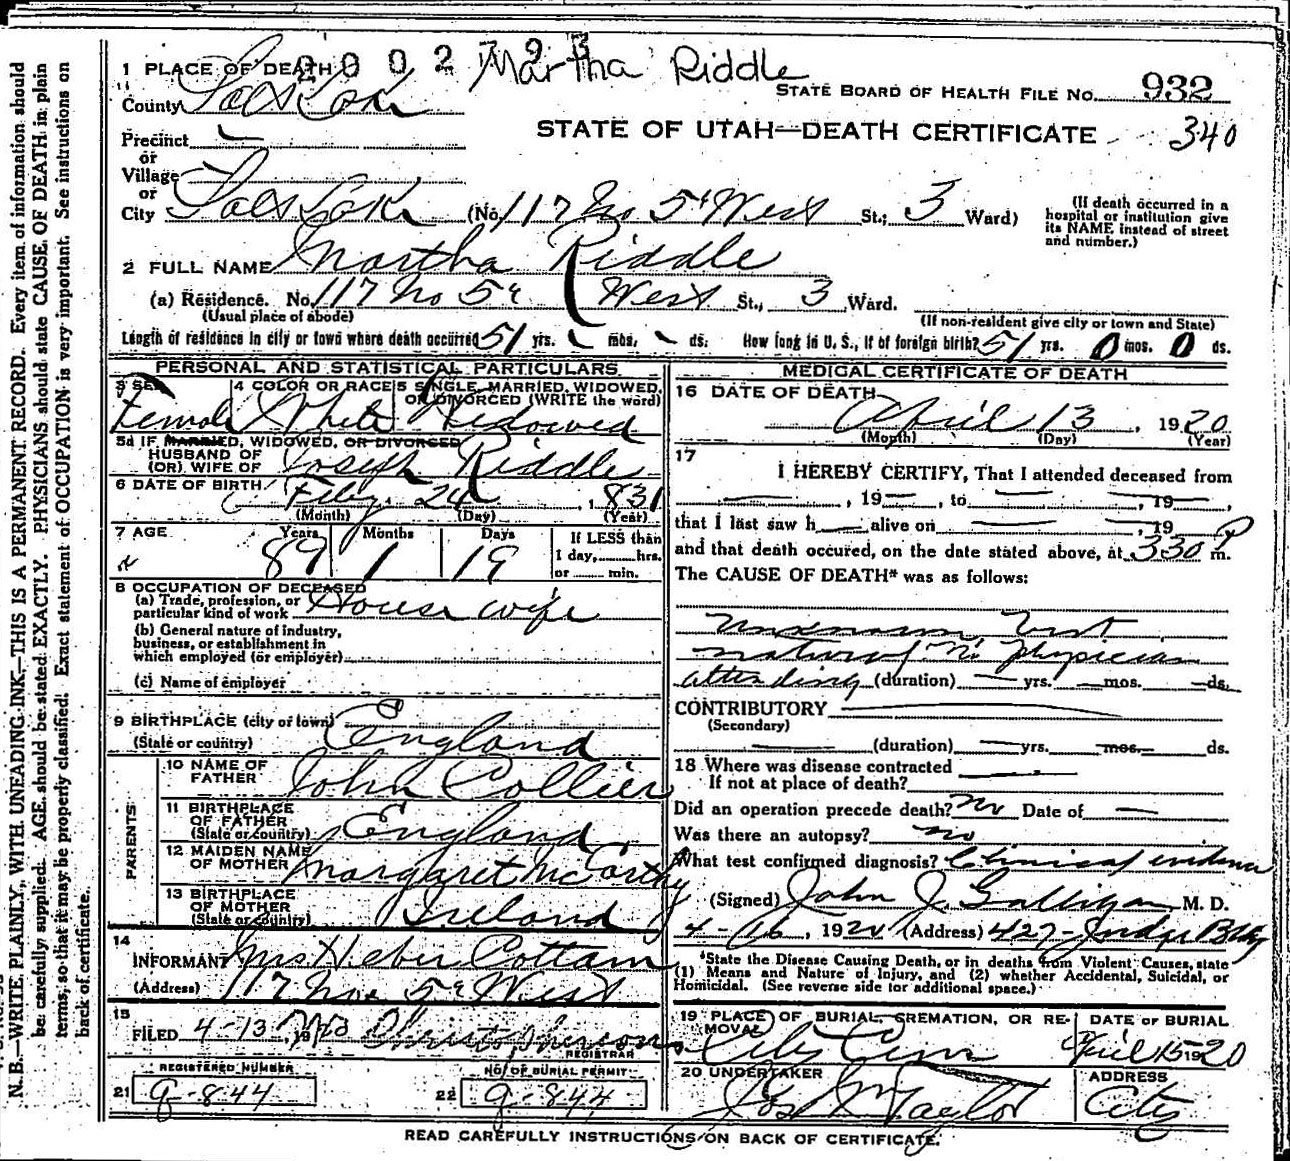 2 0 0 0 2 7 9 3
Martha Riddle
1 PLACE OF DEATH
STATE BOARD OF HEALTH FILE NO. 932
County Salt Lake
STATE OF UTAH—DEATH CERTIFICATE 340
Precinct
or
Village
or
City Salt Lake (No. 117 No 5th West St.; 3 Ward)
(If death occurred in a
hospital or institution give
its NAME instead of street
and number.)
2 FULL NAME Martha Riddle
(a) Residence. No. 117 No 5th West St., 3 Ward.
(Usual place of abode)
(If non-resident give city or town and State)
Length of residence in city or town where death occurred 51 yrs. mos. ds. How long in U. S., if of foreign birth? 51 yrs. 0 mos. 0 ds.
PERSONAL AND STATISTICAL PARTICULARS
3 SEX
Female
4 COLOR OR RACE
White
5 SINGLE, MARRIED, WIDOWED,
OR DIVORCED (WRITE the word)
Widowed
5a IF MARRIED, WIDOWED, OR DIVORCED
HUSBAND OF
(OR) WIFE OF Joseph Riddle
6 DATE OF BIRTH Feby. 24, 1831
(Month) (Day) (Year)
7 AGE Years Months Days
89 1 19
If LESS than
1 day, hrs.
or min.
8 OCCUPATION OF DECEASED
(a) Trade, profession, or
particular kind of work House wife
(b) General nature of industry,
business, or establishment in
which employed (or employer)
(c) Name of employer
9 BIRTHPLACE (city or town)
(State or country) England
PARENTS
10 NAME OF
FATHER John Collier
11 BIRTHPLACE
OF FATHER
(State or country) England
12 MAIDEN NAME
OF MOTHER Margaret McCarthy
13 BIRTHPLACE
OF MOTHER
(State or country) Ireland
14
INFORMANT Mrs Heber Cottam
(Address) 117 No. 5th West
15
FILED 4-13 19
REGISTRAR
REGISTERED NUMBER
21 G-844
NO. OF BURIAL PERMIT
22 G-844
MEDICAL CERTIFICATE OF DEATH
16 DATE OF DEATH
April 13, 1920
(Month) (Day) (Year)
17
I HEREBY CERTIFY, That I attended deceased from
, 19 , to , 19 ,
that I last saw h alive on , 19
and that death occured, on the date stated above, at 330 P m.
The CAUSE OF DEATH* was as follows:
Unknown, but
natural No physician
attending (duration) yrs. mos. ds.
CONTRIBUTORY
(Secondary)
(duration) yrs. mos. ds.
18 Where was disease contracted
If not at place of death?
Did an operation precede death? No Date of
Was there an autopsy? no
What test confirmed diagnosis? Clinical evidence
(Signed) John J. Galligan M. D.
4-16, 1920 (Address) 427-Judge Bldg
*State the Disease Causing Death, or in deaths from Violent Causes, state
(1) Means and Nature of Injury, and (2) whether Accidental, Suicidal, or
Homicidal. (See reverse side for additional space.)
19 PLACE OF BURIAL, CREMATION, OR RE-
MOVAL
City Cem
DATE OF BURIAL
April 15 1920
20 UNDERTAKER
Jos. Wm Taylor
ADDRESS
City
READ CAREFULLY INSTRUCTIONS ON BACK OF CERTIFICATE.
N. B.—WRITE PLAINLY, WITH UNFADING INK—THIS IS A PERMANENT RECORD. Every item of information should
be carefully supplied. AGE should be stated EXACTLY. PHYSICIANS should state CAUSE OF DEATH in plain
terms, so that it may be properly classified. Exact statement of OCCUPATION is very important. See instructions on
back of certificate.